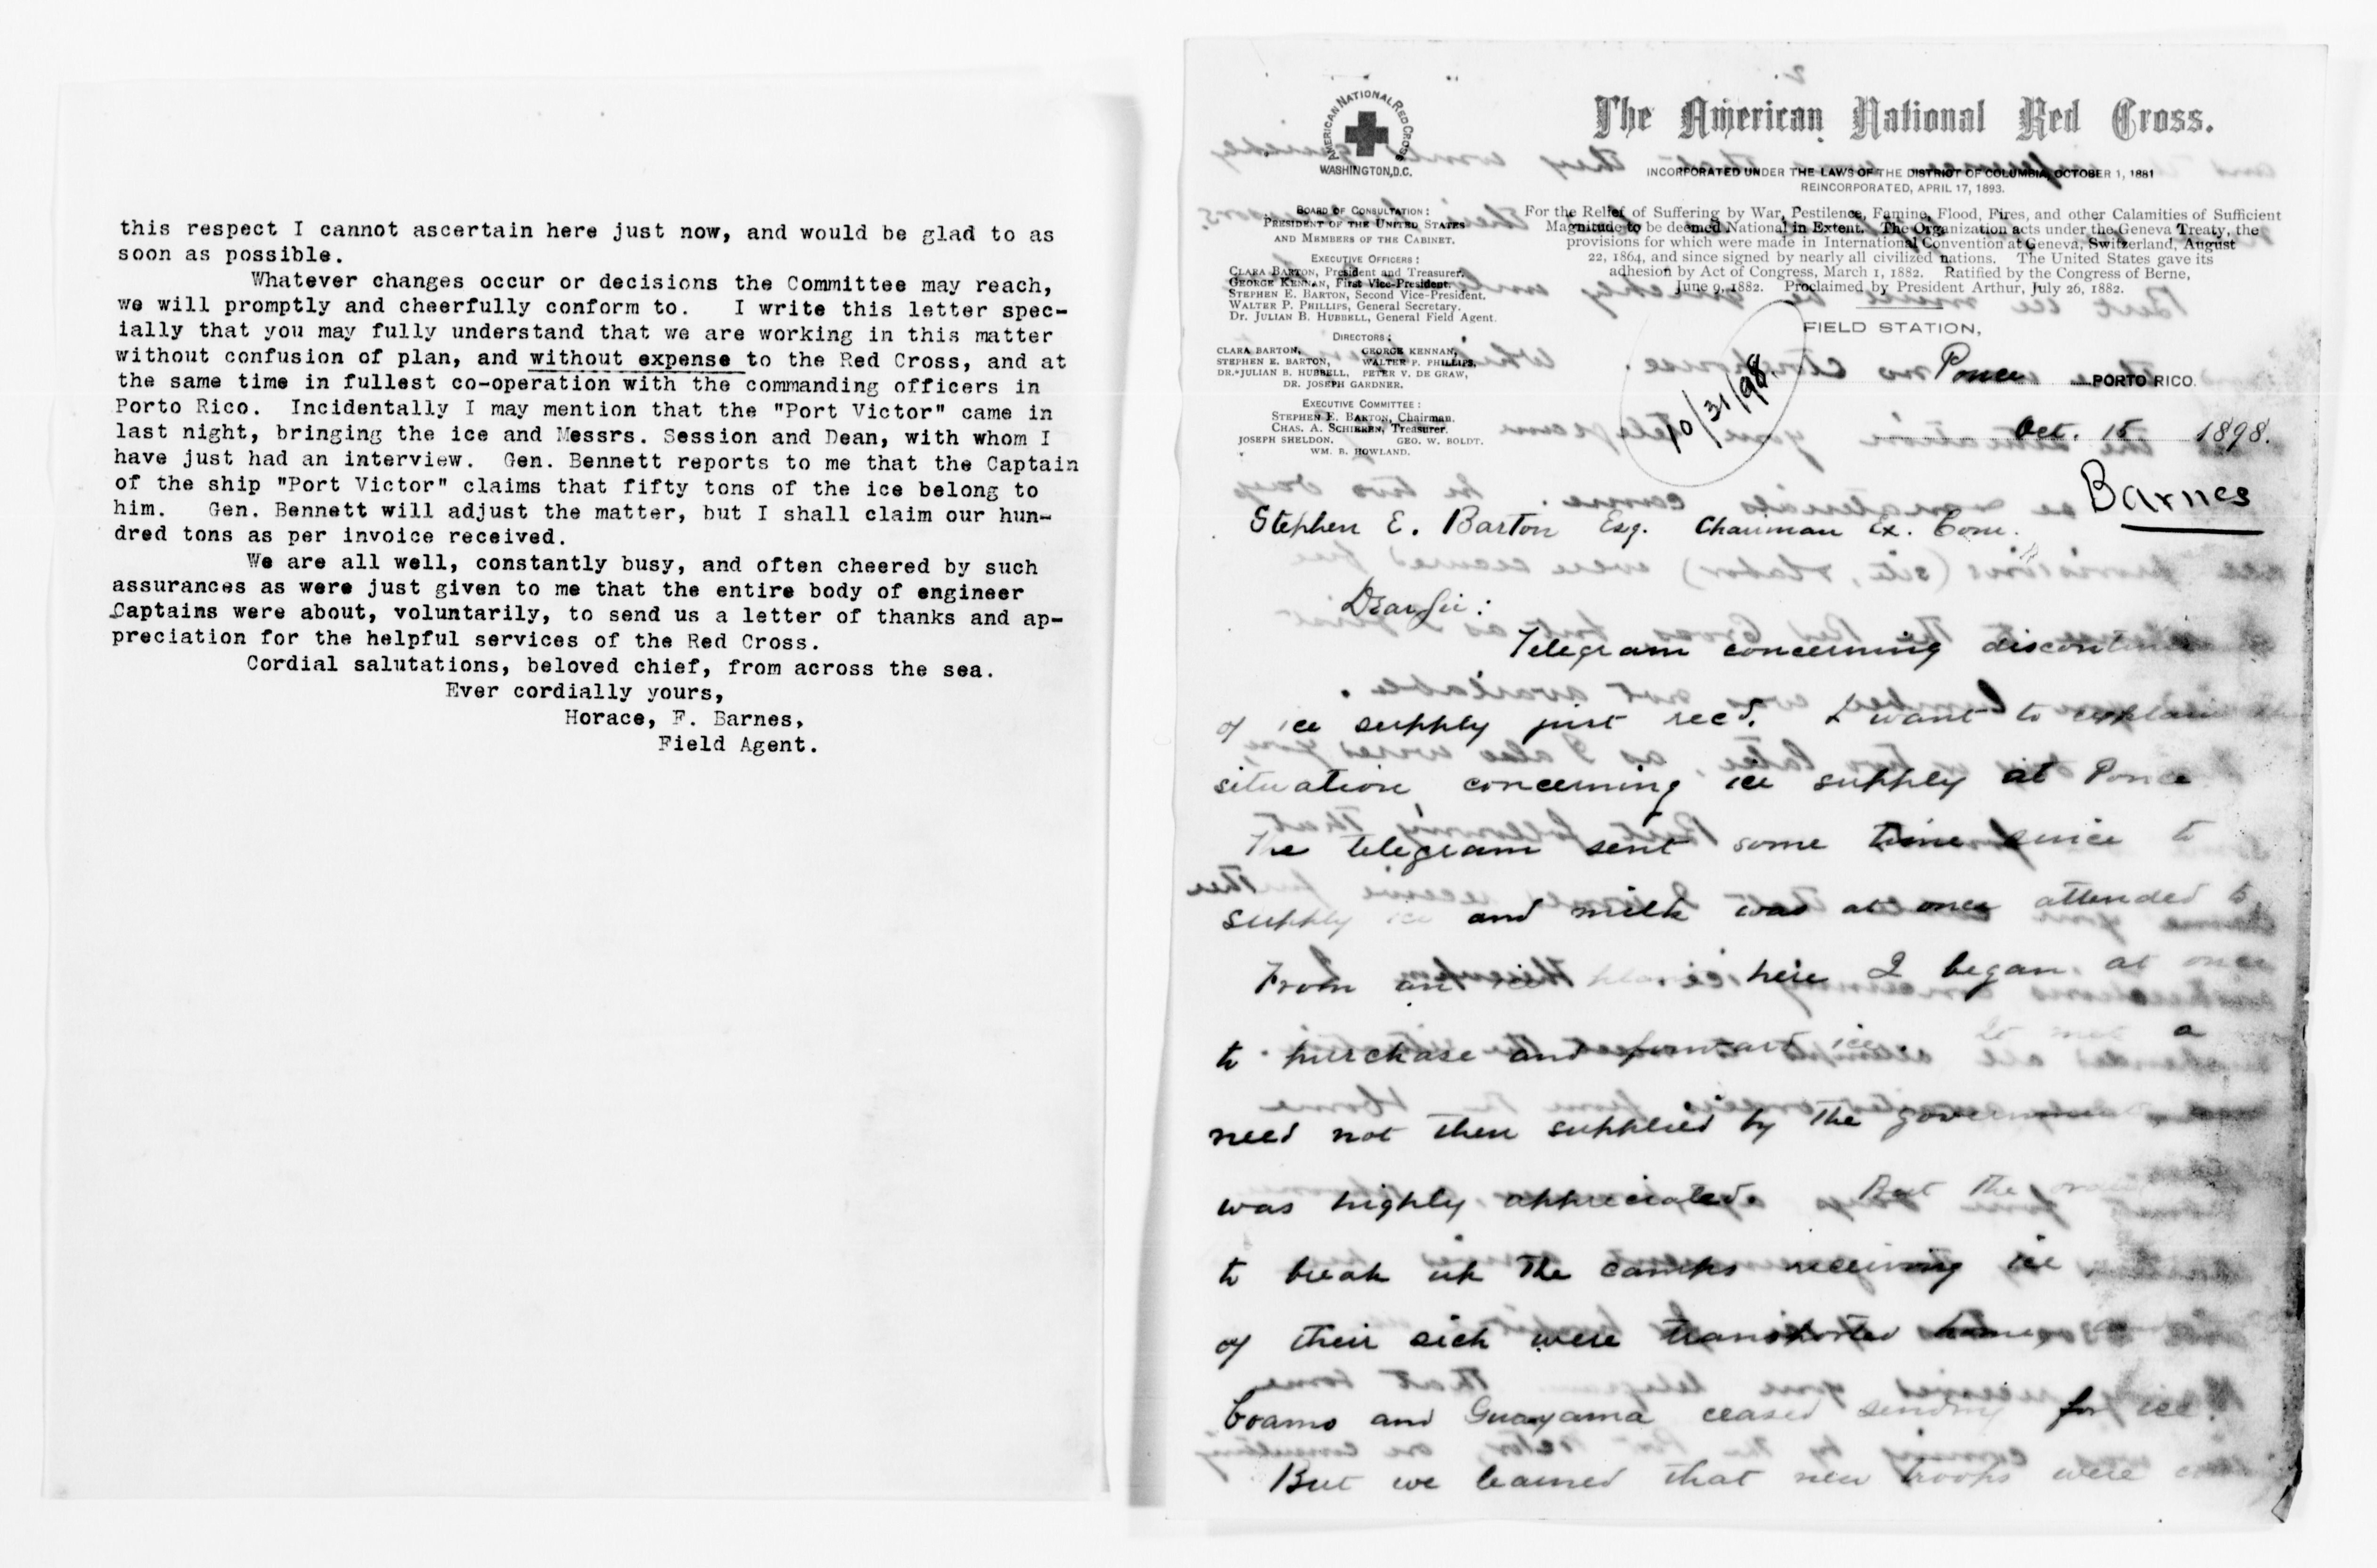 this respect I cannot ascertain here just now, and would be glad to as
soon as possible.
Whatever changes occur or decisions the Committee may reach,
we will promptly and cheerfully conform to. I write this letter spec-
ially that you may fully understand that we are working in this matter
without confusion of plan, and without expense to the Red Cross, and at
the same time in fullest co-operation with the commanding officers in
Porto Rico. Incidentally I may mention that the "Port Victor" came in
last night, bringing the ice and Messrs. Session and Dean, with whom I
have just had an interview. Gen. Bennett reports to me that the Captain
of the ship "Port Victor" claims that fifty tons of the ice belong to
him. Gen. Bennett will adjust the matter, but I shall claim our hun-
dred tons as per invoice received.
We are all well, constantly busy, and often cheered by such
assurances as were just given to me that the entire body of engineer
Captains were about, voluntarily, to send us a letter of thanks and ap-
preciation for the helpful services of the Red Cross.
Cordial salutations, beloved chief, from across the sea.
Ever cordially yours,
Horace, F. Barnes,
Field Agent.
AMERICAN NATIONAL RED CROSS
WASHINGTON, D.C.
The American National Red Cross.
INCORPORATED UNDER THE LAWS OF THE DISTRICT OF COLUMBIA, OCTOBER 1, 1881
REINCORPORATED, APRIL 17, 1893.
BOARD OF CONSULTATION:
PRESIDENT OF THE UNITED STATES
AND MEMBERS OF THE CABINET.
EXECUTIVE OFFICERS:
CLARA BARTON, President and Treasurer.
GEORGE KENNAN, First Vice-President.
STEPHEN E. BARTON, Second Vice-President.
WALTER P. PHILLIPS, General Secretary.
Dr. JULIAN B. HUBBELL, General Field Agent.
DIRECTORS:
CLARA BARTON, GEORGE KENNAN,
STEPHEN E. BARTON, WALTER P. PHILLIPS,
DR. JULIAN B. HUBBELL, PETER V. DE GRAW,
DR. JOSEPH GARDNER.
EXECUTIVE COMMITTEE:
STEPHEN E. BARTON, Chairman.
CHAS. A. SCHIEREN, Treasurer.
JOSEPH SHELDON. GEO. W. BOLDT.
WM. B. HOWLAND.
For the Relief of Suffering by War, Pestilence, Famine, Flood, Fires, and other Calamities of Sufficient
Magnitude to be deemed National in Extent. The Organization acts under the Geneva Treaty, the
provisions for which were made in International Convention at Geneva, Switzerland, August
22, 1864, and since signed by nearly all civilized nations. The United States gave its
adhesion by Act of Congress, March 1, 1882. Ratified by the Congress of Berne,
June 9, 1882. Proclaimed by President Arthur, July 26, 1882.
FIELD STATION,
Ponce PORTO RICO.
10/31/98.
Oct. 15 1898.
Barnes
Stephen E. Barton Esq. Chairman Ex. Com.
Dear Sir:
Telegram concerning
of ice supply just recd. I want to explain
situation concerning ice supply at Ponce
The telegram sent some time since to
supply ice and milk was at once attended to
From an ice here I began at once
to purchase and forward ice. It met a
need not then supplied by the government
was highly appreciated. But the
to break up the camps receiving ice
of their sick were transported home,
Coamo and Guayama ceased sending for ice.
But we learned that new troops were